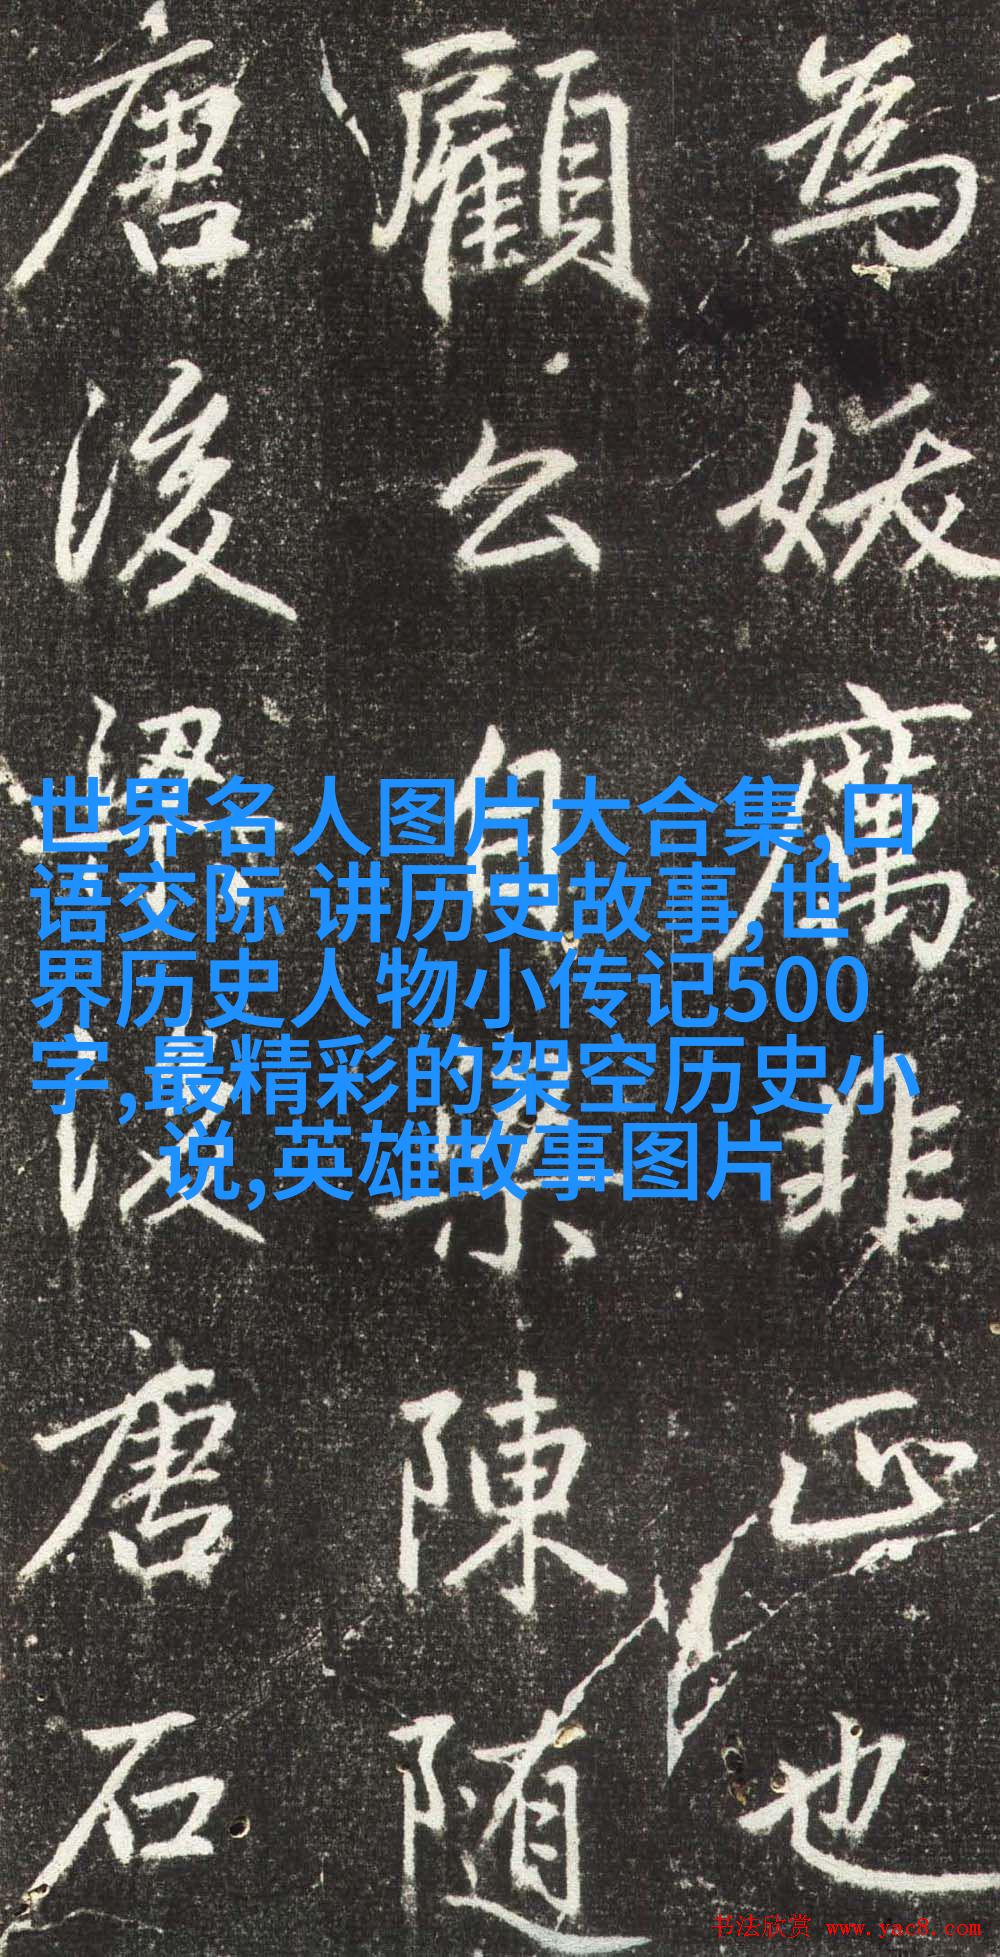 為妖厲非正也
顧公自陳随
唐後唐石
世界名人图片大合集,口
语交际 讲历史故事,世
界历史人物小传记500
字,最精彩的架空历史小
说,英雄故事图片
书法欣赏 www.yac8.com